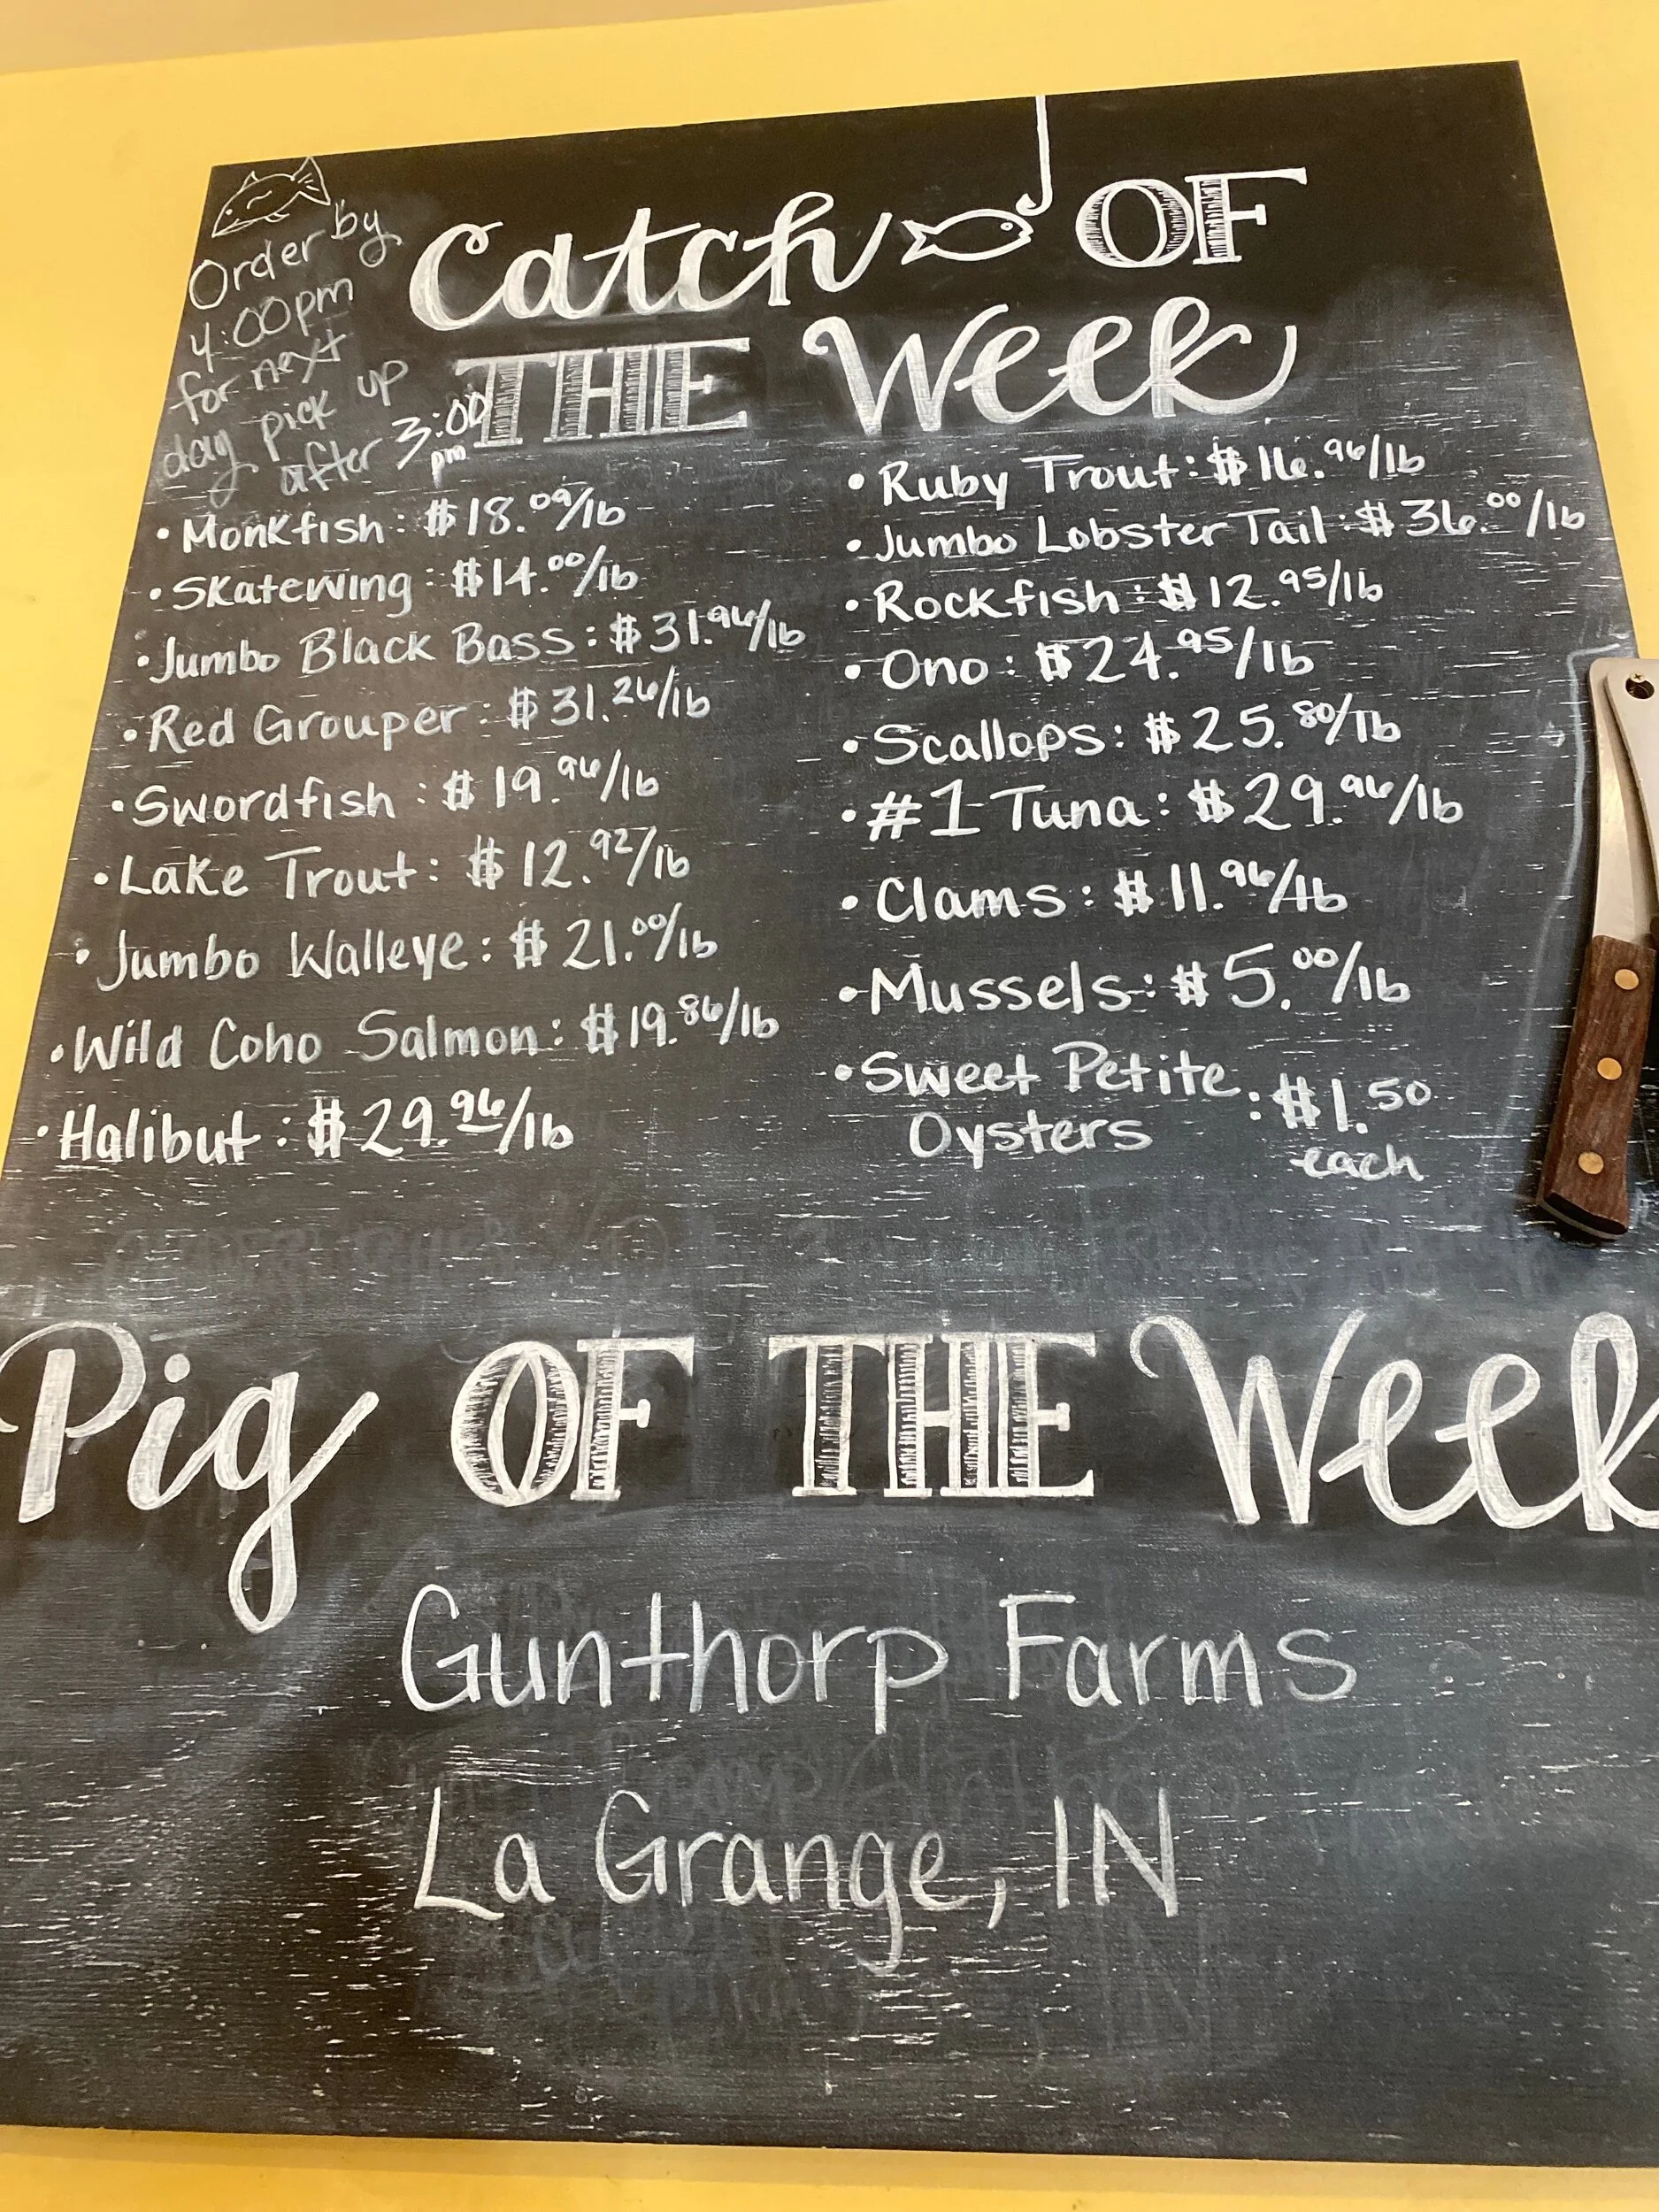 Order by
4:00pm
for next
day pick up
after 3:00
pm
Catch OF
THE Week
• Monkfish: $18.09/lb
• Skatewing: $14.00/lb
• Jumbo Black Bass: $31.96/lb
• Red Grouper: $31.26/lb
• Swordfish: $19.96/lb
• Lake Trout: $12.92/lb
• Jumbo Walleye: $21.00/lb
• Wild Coho Salmon: $19.86/lb
• Halibut: $29.96/lb
• Ruby Trout: $16.96/lb
• Jumbo Lobster Tail: $36.00/lb
• Rockfish: $12.95/lb
• Ono: $24.95/lb
• Scallops: $25.80/lb
• #1 Tuna: $29.96/lb
• Clams: $11.96/lb
• Mussels: $5.00/lb
• Sweet Petite
Oysters : $1.50
each
Pig OF THE Week
Gunthorp Farms
La Grange, IN